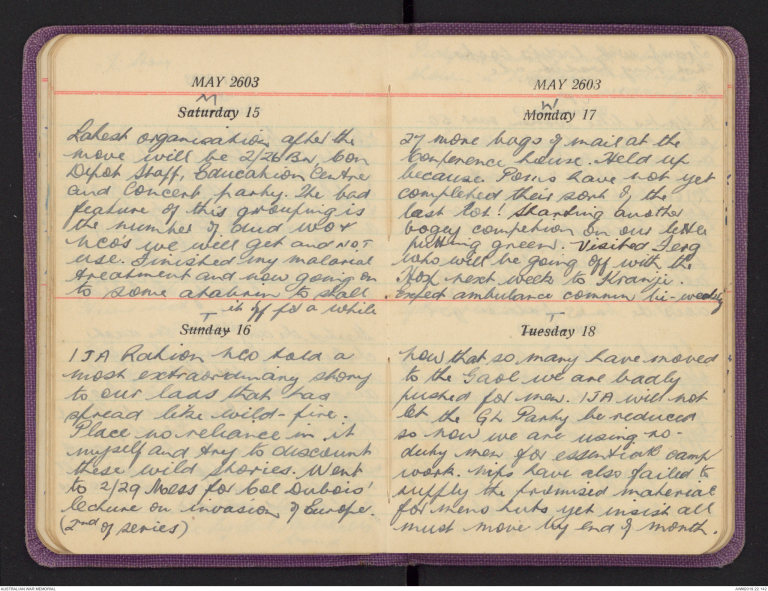 MAY 2603
M
Saturday 15
Latest organisation after the
move will be 2/26 Bn, Con
Depot Staff, Education Centre
and Concert party. The bad
feature of this grouping is
the number of dud WO's
NCO's we will get and NOT
use. Finished my malarial
treatment and now going on
to some atabrin to stall
it off for a while
T
Sunday 16
IJA Ration NCO told a
most extraordinary story
to our lads that has
spread like wild-fire.
Place no reliance in it
myself and try to discount
these wild stories. Went
to 2/29 Mess for Col Dubois'
lecture on Invasion of Europe.
(2nd of series)
MAY 2603
W
Monday 17
27 more bags of mail at the
Conference house. Held up
because Poms have not yet
completed their sort of the
last lot! Starting another
bogey competion on our little
putting green. Visited Ferg
who will be going off with the
Hosp next week to Kranji.
Expect ambulance commun bi-weekly
T
Tuesday 18
Now that so many have moved
to the Gaol we are badly
pushed for men. IJA will not
let the Gh Party be reduced
so now we are using no-
duty men for essential camp
work. Nips have also failed to
supply the promised material
for mens huts yet insist all
must move by end of month.
AUSTRALIAN WAR MEMORIAL